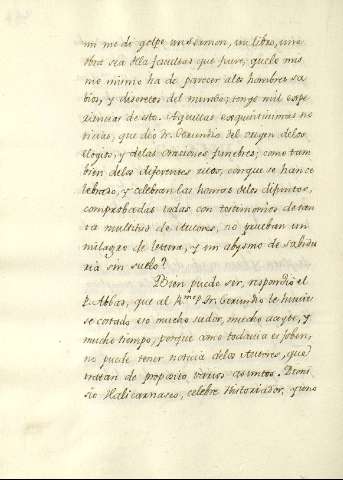 mi me dè golpe un sermon, un libro, una
obra sea dela facultad que fuere; quelo mis
mo mismo ha de parecer alos hombres sa
bios, y discretos del mundo; tengo mil expe
riencias de esto. Aquellas exquisitisimas no
ticias, que diò Fr. Gerundio del origen delos
elogios, y delas oraciones funebres; como tam
bien delos diferentes ritos, con que se han ce
lebrado, y celebran las honras delos difuntos,
comprobadas todas con testimonios de tan
ta multitud de Autores, no prueban un
milagro de letura, y un abysmo de sabidu
ria sin suelo?
Bien puede ser, respondió el
P. Abbad, que al Rmo. P. Fr. Gerundio le huvie
se costado eso mucho sudor, mucho aceyte, y
mucho tiempo; porque como todavia es joben,
no puede tener noticia delos Autores, que
tratan de proposito varios asuntos. Dioni
sio Halicarnaseo, celebre Historiador, y uno